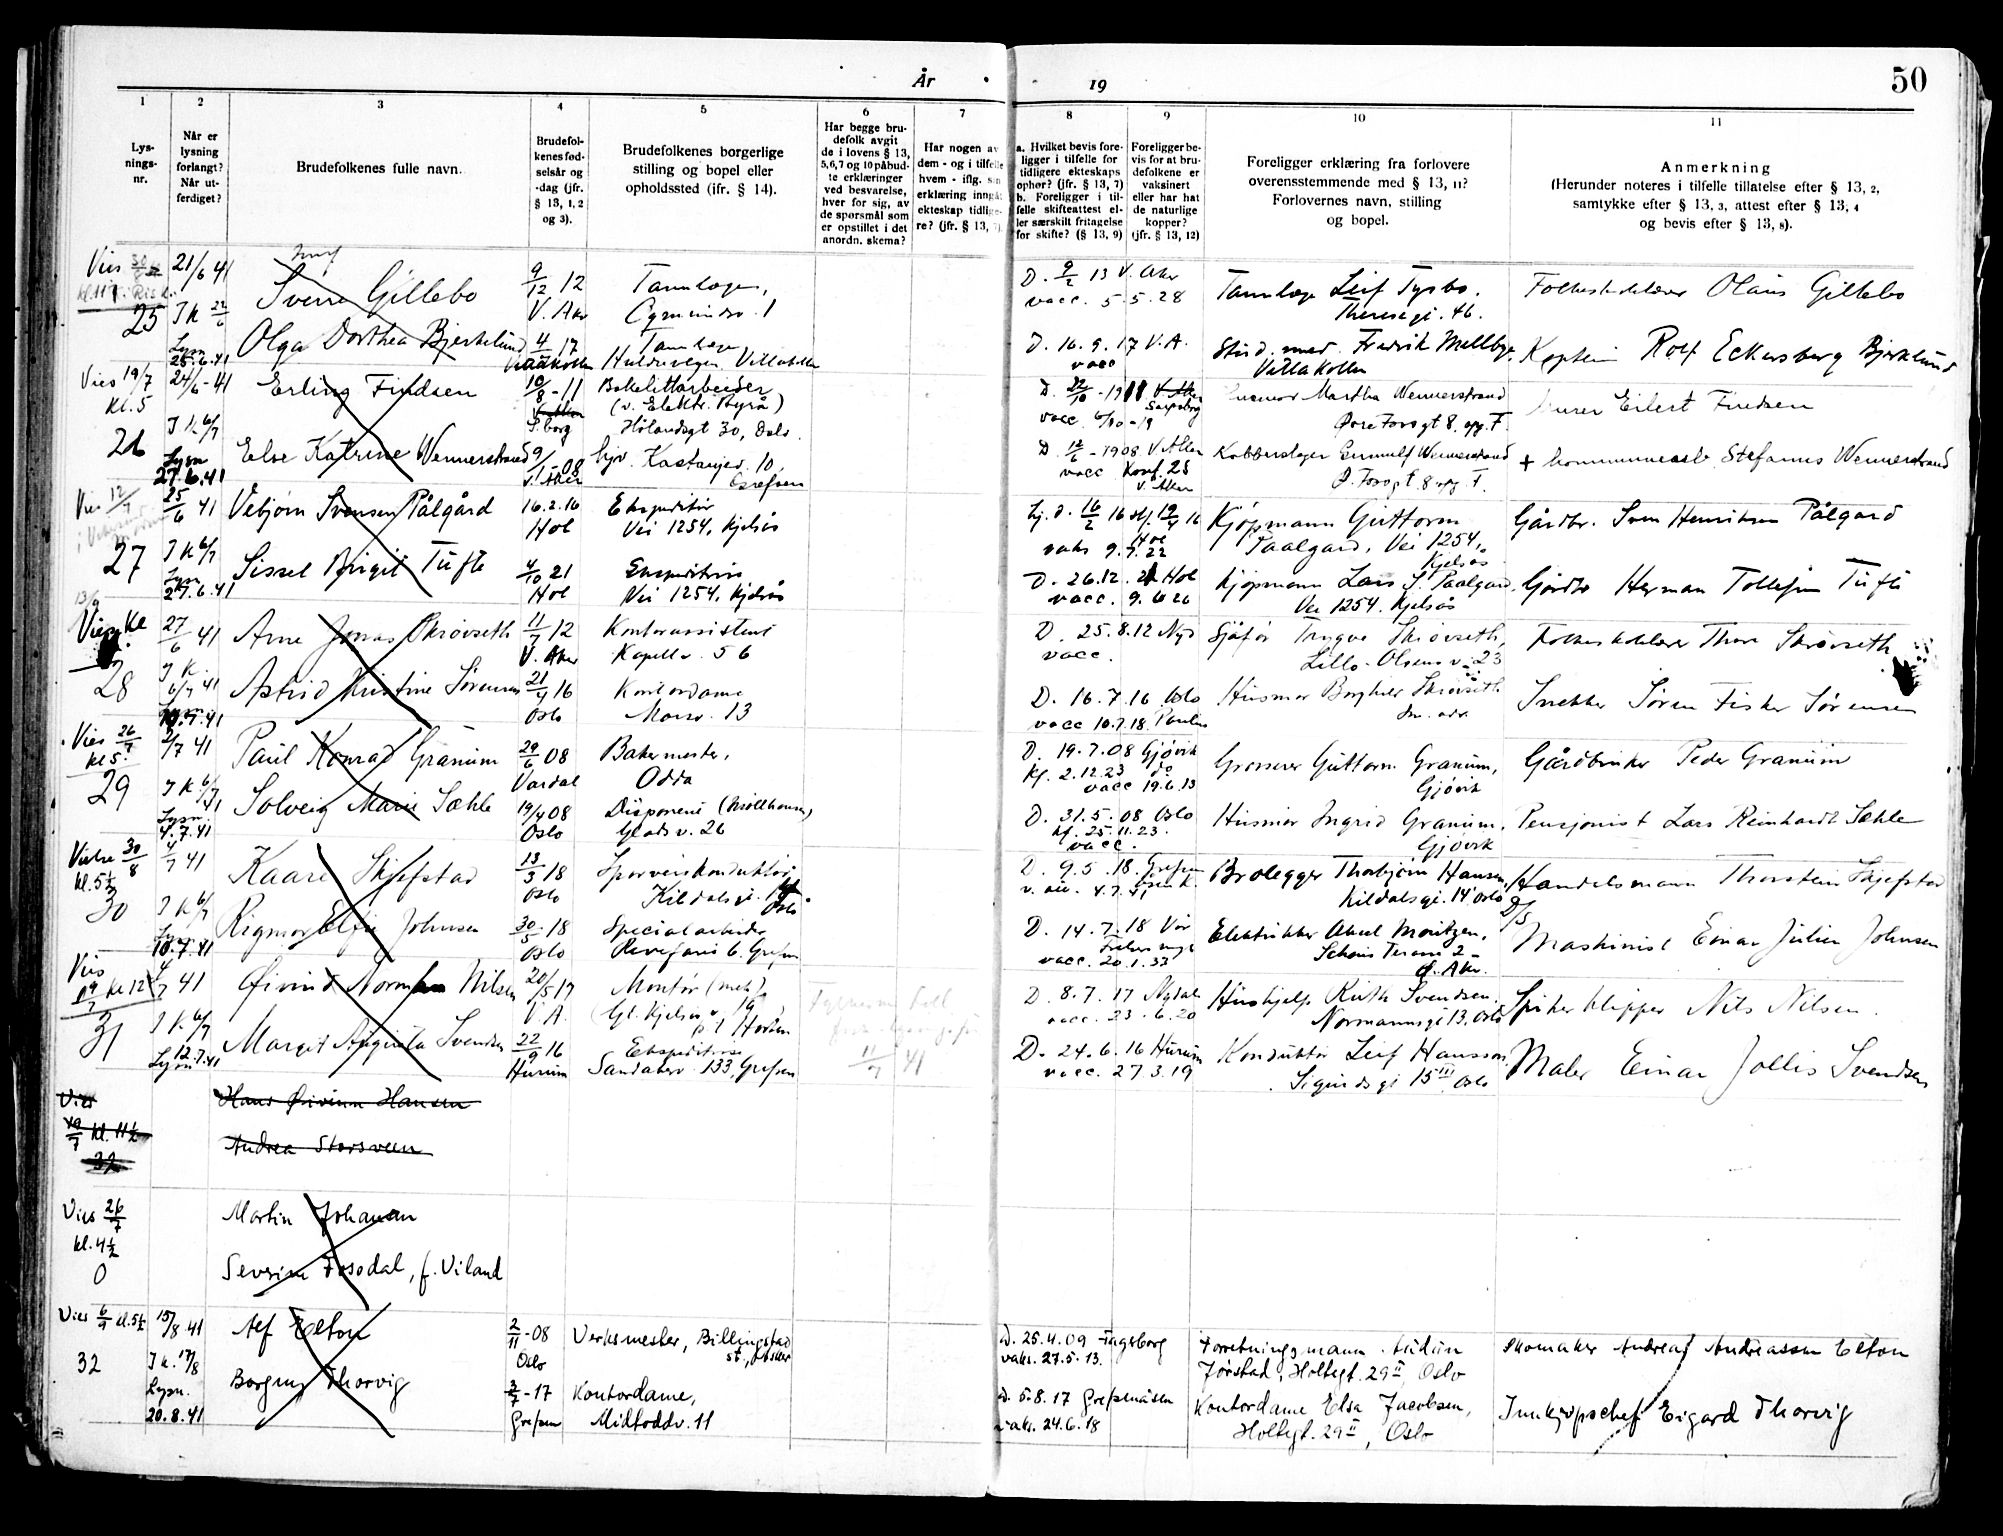 År 19
50
1 2 3 4 5 6 7 8 9 10 11
Lysnings-nr.
Når er lysning forlangt? Når utferdiget?
Brudefolkenes fulle navn.
Brudefolkenes fødselsår og -dag (jfr. § 13, 1, 2 og 3).
Brudefolkenes borgerlige stilling og bopel eller opholdssted (jfr. § 14).
Har begge brudefolk avgit de i lovens § 13, 5,6,7 og 10 påbudte erklæringer ved besvarelse, hver for sig, av de spørsmål som er opstillet i det anordn. skema?
Har nogen av dem - og i tilfelle hvem - iflg. sin erklæring inngått ekteskap tidligere? (jfr. § 13, 7).
a. Hvilket bevis foreligger i tilfelle for tidligere ekteskaps ophør? (jfr. § 13, 7)
b. Foreligger i tilfelle skifteattest eller særskilt fritagelse for skifte? (§ 13, 9)
Foreligger bevis for at brudefolkene er vaksinert eller har hat de naturlige kopper? (jfr. § 13, 12)
Foreligger erklæring fra forlovere overensstemmende med § 13, 11? Forlovernes navn, stilling og bopel.
Anmerkning
(Herunder noteres i tilfelle tillatelse efter § 13, 2, samtykke efter § 13, 3, attest efter § 13, 4 og bevis efter § 13, 8).
Vies 30/
25
21/6 41
J K 22/6
Lysn 25.6.41
Sverre Gillebo
9/12 12
V. Aker
Tannlæge,
D. 9/2 13 V. Aker
vacc. 5.5.28
Tannlæge Leif Tysbo.
Theresegt. 46.
Folkeskolelærer Olaus Gillebo
Olga Dorthea Bjerkelund
4/4 17
Tannlæge
Huldreveien Villakollen
D. 16.9.17 V.A.
vacc
Stud. med. Fredrik Mellbye,
Villakollen
Kaptein Rolf Eckersberg Bjerklund
Vies 19/7
kl. 5
26
24/6 - 41
J K 6/7
Lysn
27.6.41
Erling Findsen
10/8 - 11
V. Aker
S.borg
Bakelittarbeider
(v. Elektr. Byrå)
Hølandsgt 30, Oslo.
V. Aker
Sarpsborg
Martha Wennerstrand
Øvre Fossgt 8, opg. F.
Eilert Findsen
Else Katrine Wennerstrand
9/1 - 08
V. Aker
Kastanjev. 10,
Grefsen
D. 12/6 - 1908 V. Aker
vacc Konf. 23
V. Aker
Kobberslager Gunnulf Wennerstrand
Ø. Fossgt. 8 opg. F.
+ Stefanus Wennerstrand
Vies 12/7
27
25/6 41
J K 6/7
Lysn.
27.6.41
Vebjørn Svensen Pålgård
16.2.16
Hol
Ekspeditør
Vei 1254, Kjelsås
16/2 16
Hol
vaks 9.9.22
Kjøpmann Guttorm
Paalgard, Vei 1254,
Kjelsås
Gårdbr. Sven Henriksen Pålgard
Sissel Birgit Tufte
4/10 21
Hol
Ekspeditrise
Vei 1254, Kjelsås
D. 26.12.21 Hol
vacc. 9.6 26
Kjøpmann Lars S. Paalgard,
Vei 1254. Kjelsås
Gårdbr Herman Tollefsen Tufte
13/9
Vies kl
28
27/6 41
J K.
6/7 41
Arne Jonas Skrøvseth
11/7 12
V. Aker
Kontorassistent
Kapellv. 56
D. 25.8.12
vacc.
Sjåfør Trygve Skrøvseth,
Lille-Olsens v. 23
Folkeskolelærer Thore Skrøvseth
Astrid Kristine Sørensen
21/4 16
Oslo
Kontordame
Morsv. 13
D. 16.7.16 Oslo
vacc 10.7.18 Paulus
Husmor Borghild Skrøvseth
Snekker Søren Fisker Sørensen
Vies 26/7
kl 5.
29
2/7 41
J K 6/7
Lysn.
4.7.41
Paul Konrad Granum
29/6 08
Vardal
Bakermester,
Odda
D. 19.7.08 Gjøvik
Kf. 2.12.23 do
vacc 19.6.13
Grosserer Guttorm Granum,
Gjøvik
Gårdbruker Peder Granum
Solveig Marie Sæhle
19/4 08
Oslo
Disponent
Gladv. 26
D. 31.5.08 Oslo
kf. 25.11.23.
vacc.
Husmor Ingrid Granum.
Gjøvik
Pensjonist Lars Reinhardt Sæhle
Vielse 30/8
kl. 5½
30
4/7 41
J K 6/7
Lysn
10.7.41
Kaare Skjefstad
13/3 18
Oslo
Sporveiskonduktør,
Kildalsgt. 14
Oslo
D. 9.5.18. Grefsen
Brolegger Thorbjørn Hansen,
Kildalsgt. 14 Oslo
Handelsmann Thorstein Skjefstad
Rigmor Elfie Johnsen
30/5 - 18
Oslo
Spesialarbeider
Revefaret 6. Grefsen
D. 14.7.18 Vår
Frelsers
vacc. 20.1.33
Elektrikker Aksel Moritzen,
Schous Terasse 2
Ø. Aker.
Maskinist Einar Julius Johnsen
Vies
19/7 kl 12
31
4/7 41
J K 6/7
12.7.41
Lysn
Øivind Norman Nilsen
20/5 17
V A.
Montør (mek),
Gl. Kjelsåsv. 19
p.t Horten
11/7 41
D. 8.7.17 Nydal
vacc. 23.6.20
Hushjelp Ruth Svendsen.
Normannsgt 13, Oslo
Spikerklipper Nils Nilsen.
Margit Augusta Svendsen
22/9 16
Hurum
Ekspeditrise
Sandakerv. 133, Grefsen
D. 24.6.16 Hurum
vacc. 27.3.19
Konduktør Leif Hansson
Sigurdsgt 15 III, Oslo
Maler Einar Jollis Svendsen
Vies
19/7 kl. 11½
32
Hans Øivinn Hansen
Andrea Storsveen
Vies 26/7
kl. 4½
0
Martin Johansen
Sevrine Fosodal, f. Viland
Vies 6/9 kl. 5½
32
15/8 41
J k. 17/8
Lysn.
20.8.41
Alf Elton
2/11 - 08
Oslo
Verksmester, Billingstad
st., Asker
D. 25.4.09 Fagsborg
vaks. 27.5.13.
Forretningsmann Audun
Jørstad, Holtegt. 29 II, Oslo
Skomaker Andreas Andreassen Elton
Borgny Thorvig
3/7 - 17
Grefsen
Kontordame,
Midtoddv. 11
D. 5.8.17 Grefsenåsen
vaks. 24.6.18
Kontordame Elsa Jacobsen,
Holtegt. 29 II, Oslo
Innkjøpschef Eigard Thorvig